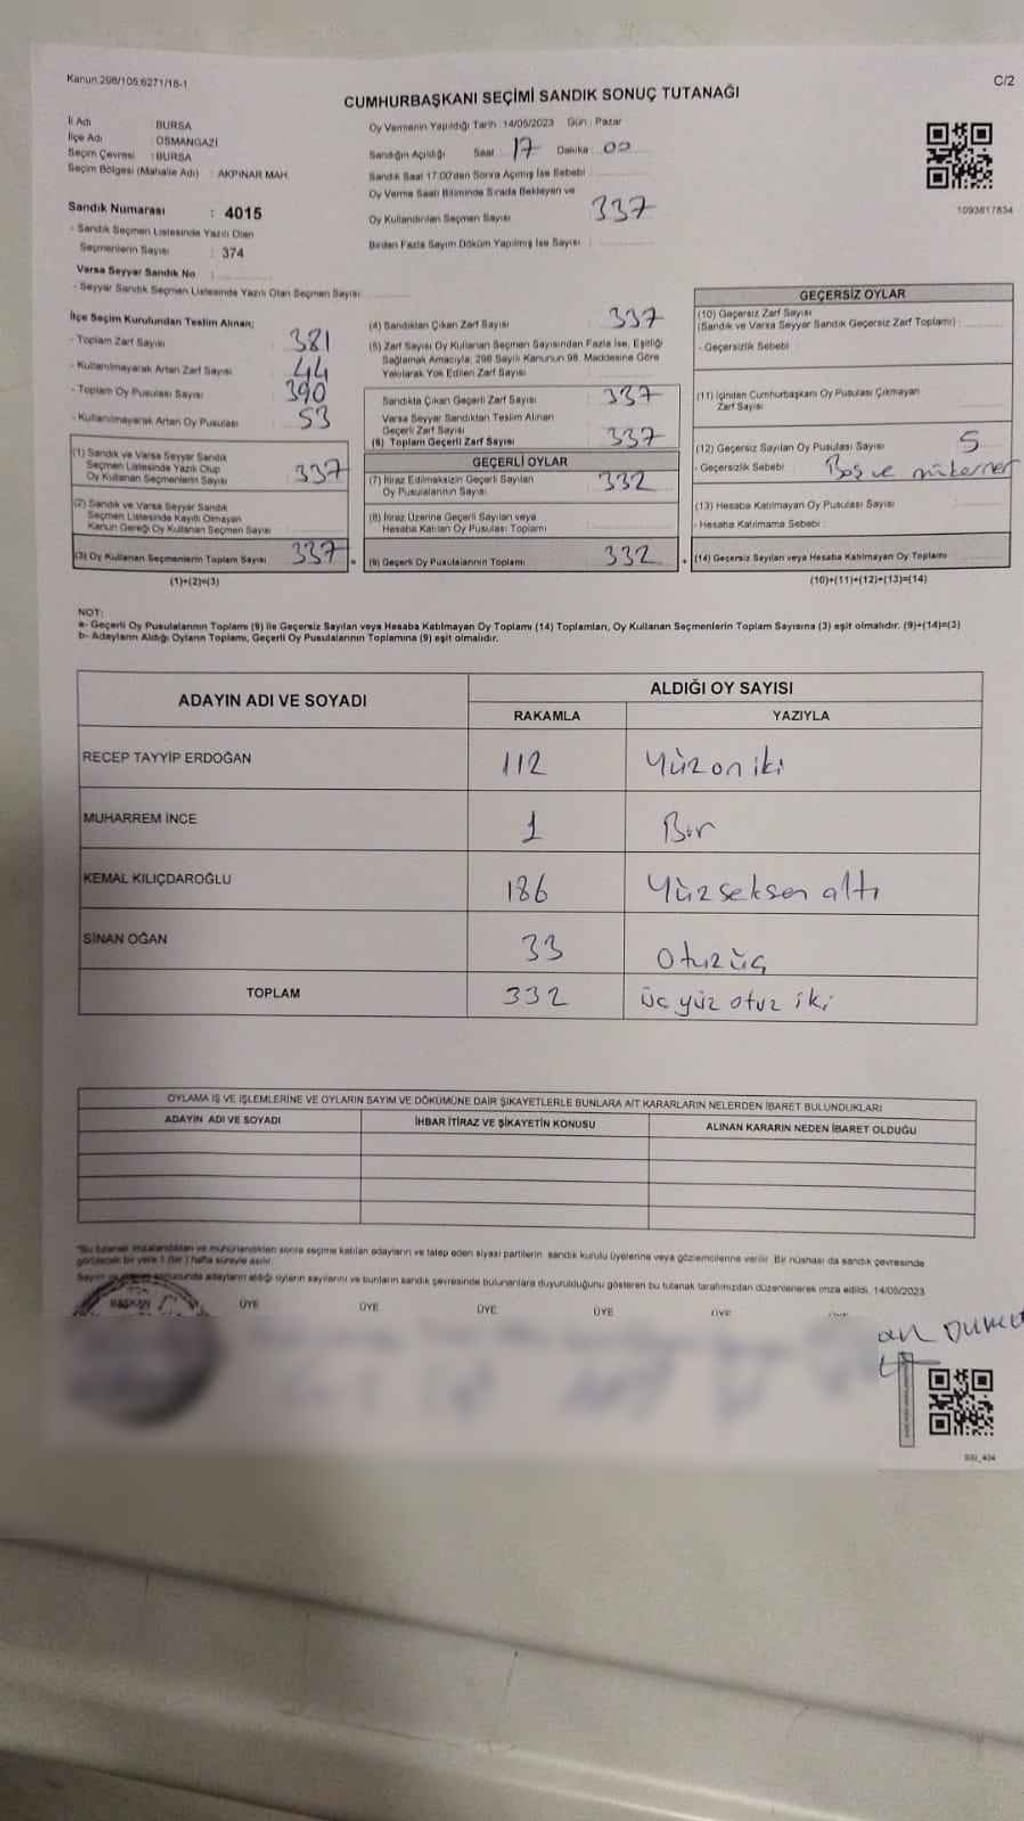 Kanun 298/105;6271/18-1
C/2
CUMHURBAŞKANI SEÇİMİ SANDIK SONUÇ TUTANAĞI
İl Adı BURSA
İlçe Adı OSMANGAZİ
Seçim Çevresi : BURSA
Seçim Bölgesi (Mahalle Adı) : AKPINAR MAH.
Sandık Numarası : 4015
- Sandık Seçmen Listesinde Yazılı Olan
Seçmenlerin Sayısı : 374
Varsa Seyyar Sandık No :
- Seyyar Sandık Seçmen Listesinde Yazılı Olan Seçmen Sayısı
Oy Vermenin Yapıldığı Tarih : 14/05/2023 Gün : Pazar
Sandığın Açıldığı Saat : 17 Dakika : 00
Sandık Saat 17.00'den Sonra Açılmış İse Sebebi
Oy Verme Saati Bitiminde Sırada Bekleyen ve
Oy Kullandırılan Seçmen Sayısı 337
Birden Fazla Sayım Döküm Yapılmış İse Sayısı :
1093817834
İlçe Seçim Kurulundan Teslim Alınan;
- Toplam Zarf Sayısı 381
- Kullanılmayarak Artan Zarf Sayısı 44
- Toplam Oy Pusulası Sayısı 390
- Kullanılmayarak Artan Oy Pusulası 53
(1) Sandık ve Varsa Seyyar Sandık
Seçmen Listesinde Yazılı Olup
Oy Kullanan Seçmenlerin Sayısı 337
(2) Sandık ve Varsa Seyyar Sandık
Seçmen Listesinde Kayıtlı Olmayan
Kanun Gereği Oy Kullanan Seçmen Sayısı
(3) Oy Kullanan Seçmenlerin Toplam Sayısı 337
(1)+(2)=(3)
(4) Sandıktan Çıkan Zarf Sayısı 337
(5) Zarf Sayısı Oy Kullanan Seçmen Sayısından Fazla İse, Eşitliği
Sağlamak Amacıyla, 298 Sayılı Kanunun 98. Maddesine Göre
Yakılarak Yok Edilen Zarf Sayısı
Sandıkta Çıkan Geçerli Zarf Sayısı 337
Varsa Seyyar Sandıktan Teslim Alınan
Geçerli Zarf Sayısı
(6) Toplam Geçerli Zarf Sayısı 337
GEÇERLİ OYLAR
(7) İtiraz Edilmeksizin Geçerli Sayılan
Oy Pusulalarının Sayısı 332
(8) İtiraz Üzerine Geçerli Sayılan veya
Hesaba Katılan Oy Pusulası Toplamı
(9) Geçerli Oy Pusulalarının Toplamı 332
GEÇERSİZ OYLAR
(10) Geçersiz Zarf Sayısı
(Sandık ve Varsa Seyyar Sandık Geçersiz Zarf Toplamı)
- Geçersizlik Sebebi
(11) İçinden Cumhurbaşkanı Oy Pusulası Çıkmayan
Zarf Sayısı
(12) Geçersiz Sayılan Oy Pusulası Sayısı 5
- Geçersizlik Sebebi Boş ve mükerrer
(13) Hesaba Katılmayan Oy Pusulası Sayısı
- Hesaba Katılmama Sebebi
(14) Geçersiz Sayılan veya Hesaba Katılmayan Oy Toplamı
(10)+(11)+(12)+(13)=(14)
NOT:
a- Geçerli Oy Pusulalarının Toplamı (9) ile Geçersiz Sayılan veya Hesaba Katılmayan Oy Toplamı (14) Toplamları, Oy Kullanan Seçmenlerin Toplam Sayısına (3) eşit olmalıdır. (9)+(14)=(3)
b- Adayların Aldığı Oyların Toplamı, Geçerli Oy Pusulalarının Toplamına (9) eşit olmalıdır.
ADAYIN ADI VE SOYADI
ALDIĞI OY SAYISI
RAKAMLA YAZIYLA
RECEP TAYYİP ERDOĞAN 112 Yüzoniki
MUHARREM İNCE 1 Bir
KEMAL KILIÇDAROĞLU 186 Yüzseksen altı
SİNAN OĞAN 33 Otuzüç
TOPLAM 332 üç yüz otuz iki
OYLAMA İŞ VE İŞLEMLERİNE VE OYLARIN SAYIM VE DÖKÜMÜNE DAİR ŞİKAYETLERLE BUNLARA AİT KARARLARIN NELERDEN İBARET BULUNDUKLARI
ADAYIN ADI VE SOYADI İHBAR İTİRAZ VE ŞİKAYETİN KONUSU ALINAN KARARIN NEDEN İBARET OLDUĞU
"Bu tutanak imzalandıktan ve mühürlendikten sonra seçime katılan adayların ve talep eden siyasi partilerin sandık kurulu üyelerine veya gözlemcilerine verilir. Bir nüshası da sandık çevresinde
görülecek bir yere 1 (bir) hafta süreyle asılır.
adayların aldığı oyların sayılarını ve bunların sandık çevresinde bulunanlara duyurulduğunu gösteren bu tutanak tarafımızdan düzenlenerek imza edildi. 14/05/2023
BAŞKAN ÜYE ÜYE ÜYE ÜYE ÜYE